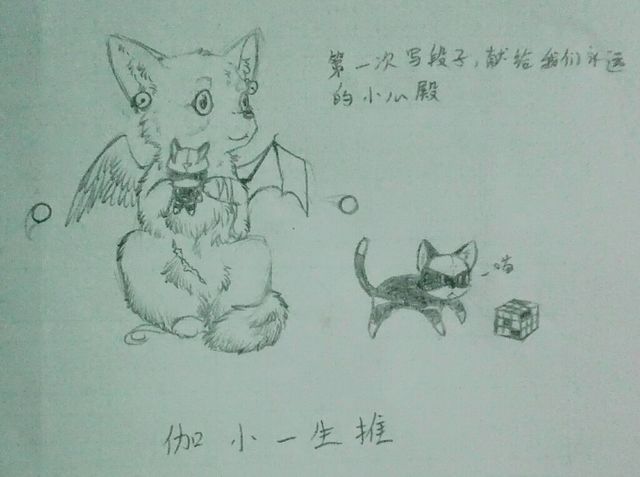 第一次写段子,献给我们永远
的小瓜殿
喵
伽小一生推